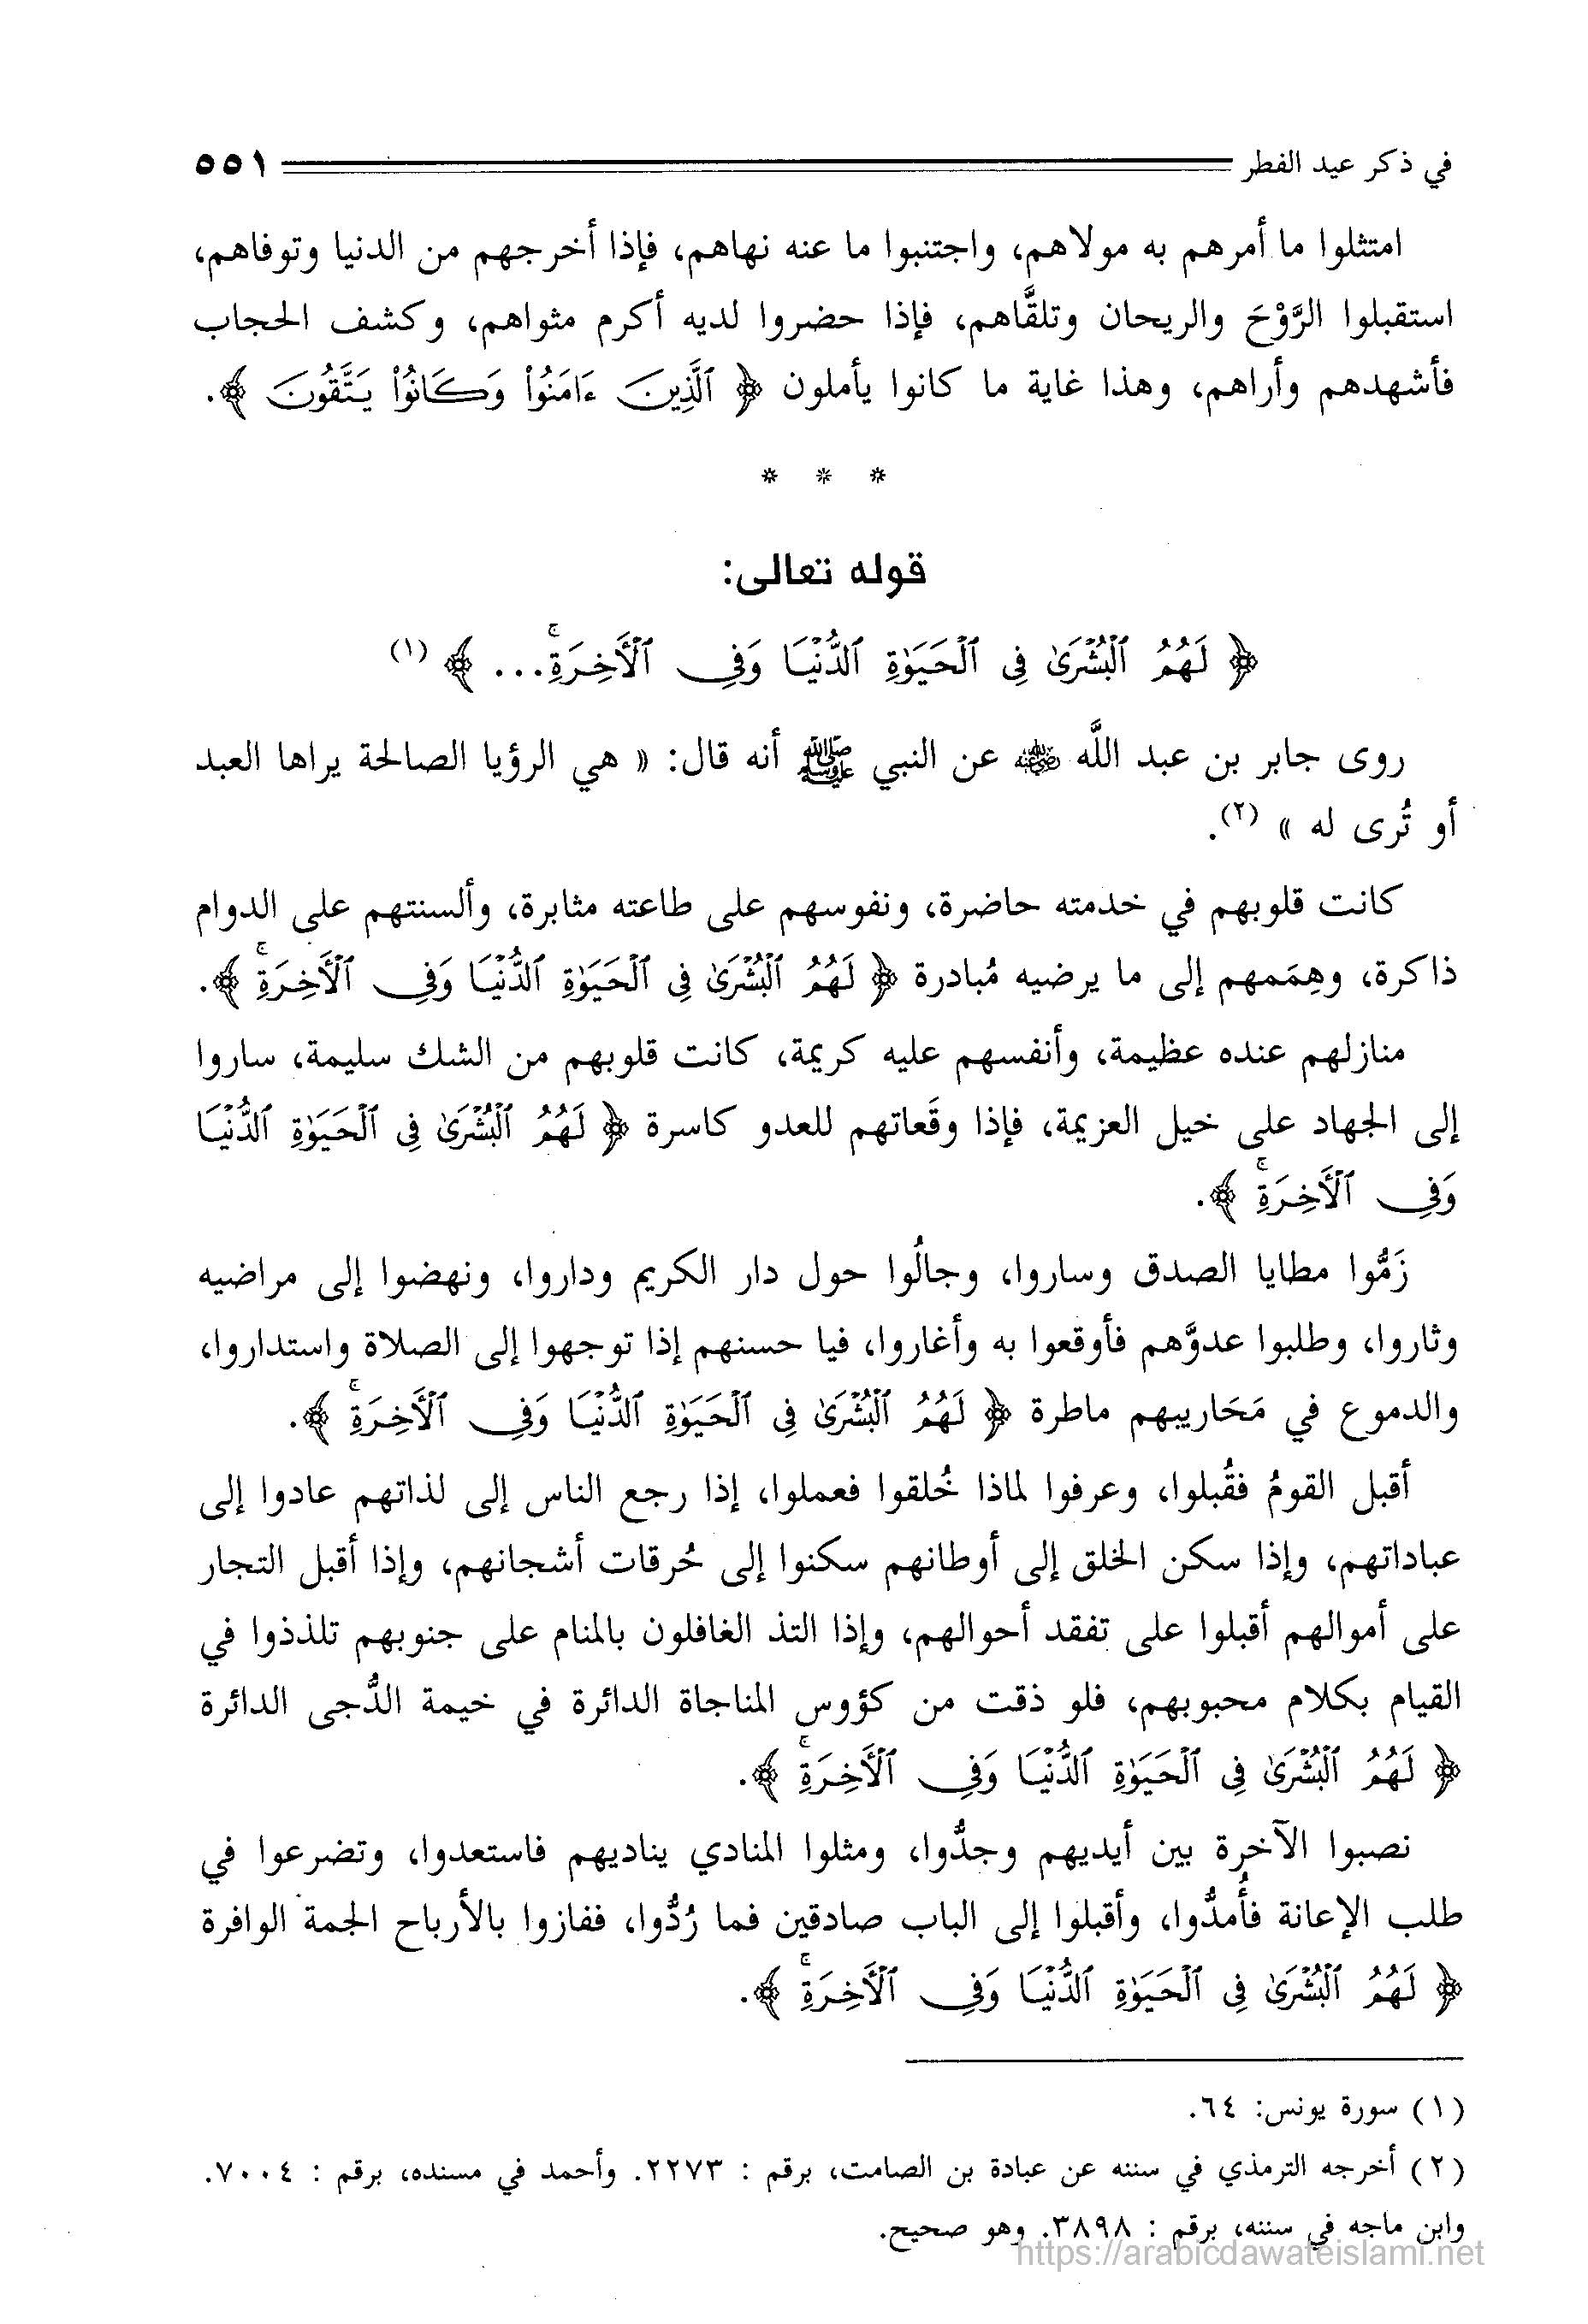 في ذكر عيد الفطر ٥٥١
امتثلوا ما أمرهم به مولاهم، واجتنبوا ما عنه نهاهم، فإذا أخرجهم من الدنيا وتوفاهم،
استقبلوا الرَّوْحَ والريحان وتلقَّاهم، فإذا حضروا لديه أكرم مثواهم، وكشف الحجاب
فأشهدهم وأراهم، وهذا غاية ما كانوا يأملون ﴿ ٱلَّذِينَ ءَامَنُوا۟ وَكَانُوا۟ يَتَّقُونَ ﴾.
* * *
قوله تعالى:
﴿ لَهُمُ ٱلْبُشْرَىٰ فِى ٱلْحَيَوٰةِ ٱلدُّنْيَا وَفِى ٱلْأَخِرَةِ ۚ... ﴾ (١)
روى جابر بن عبد اللَّه رضي الله عنه عن النبي ﷺ أنه قال: « هي الرؤيا الصالحة يراها العبد
أو تُرى له » (٢).
كانت قلوبهم في خدمته حاضرة، ونفوسهم على طاعته مثابرة، وألسنتهم على الدوام
ذاكرة، وهِمَمهم إلى ما يرضيه مُبادرة ﴿ لَهُمُ ٱلْبُشْرَىٰ فِى ٱلْحَيَوٰةِ ٱلدُّنْيَا وَفِى ٱلْأَخِرَةِ ۚ ﴾.
منازلهم عنده عظيمة، وأنفسهم عليه كريمة، كانت قلوبهم من الشك سليمة، ساروا
إلى الجهاد على خيل العزيمة، فإذا وقَعاتهم للعدو كاسرة ﴿ لَهُمُ ٱلْبُشْرَىٰ فِى ٱلْحَيَوٰةِ ٱلدُّنْيَا
وَفِى ٱلْأَخِرَةِ ۚ ﴾.
زَمُّوا مطايا الصدق وساروا، وجالُوا حول دار الكريم وداروا، ونهضوا إلى مراضيه
وثاروا، وطلبوا عدوَّهم فأوقعوا به وأغاروا، فيا حسنهم إذا توجهوا إلى الصلاة واستداروا،
والدموع في مَحَاريبهم ماطرة ﴿ لَهُمُ ٱلْبُشْرَىٰ فِى ٱلْحَيَوٰةِ ٱلدُّنْيَا وَفِى ٱلْأَخِرَةِ ۚ ﴾.
أقبل القومُ فقُبلوا، وعرفوا لماذا خُلقوا فعملوا، إذا رجع الناس إلى لذاتهم عادوا إلى
عباداتهم، وإذا سكن الخلق إلى أوطانهم سكنوا إلى حُرقات أشجانهم، وإذا أقبل التجار
على أموالهم أقبلوا على تفقد أحوالهم، وإذا التذ الغافلون بالمنام على جنوبهم تلذذوا في
القيام بكلام محبوبهم، فلو ذقت من كؤوس المناجاة الدائرة في خيمة الدُّجى الدائرة
﴿ لَهُمُ ٱلْبُشْرَىٰ فِى ٱلْحَيَوٰةِ ٱلدُّنْيَا وَفِى ٱلْأَخِرَةِ ۚ ﴾.
نصبوا الآخرة بين أيديهم وجدُّوا، ومثلوا المنادي يناديهم فاستعدوا، وتضرعوا في
طلب الإعانة فأُمدُّوا، وأقبلوا إلى الباب صادقين فما رُدُّوا، ففازوا بالأرباح الجمة الوافرة
﴿ لَهُمُ ٱلْبُشْرَىٰ فِى ٱلْحَيَوٰةِ ٱلدُّنْيَا وَفِى ٱلْأَخِرَةِ ۚ ﴾.
(١) سورة يونس: ٦٤.
(٢) أخرجه الترمذي في سننه عن عبادة بن الصامت، برقم : ٢٢٧٣. وأحمد في مسنده، برقم : ٧٠٠٤.
وابن ماجه في سننه، برقم : ٣٨٩٨. وهو صحيح.
https://arabicdawateislami.net